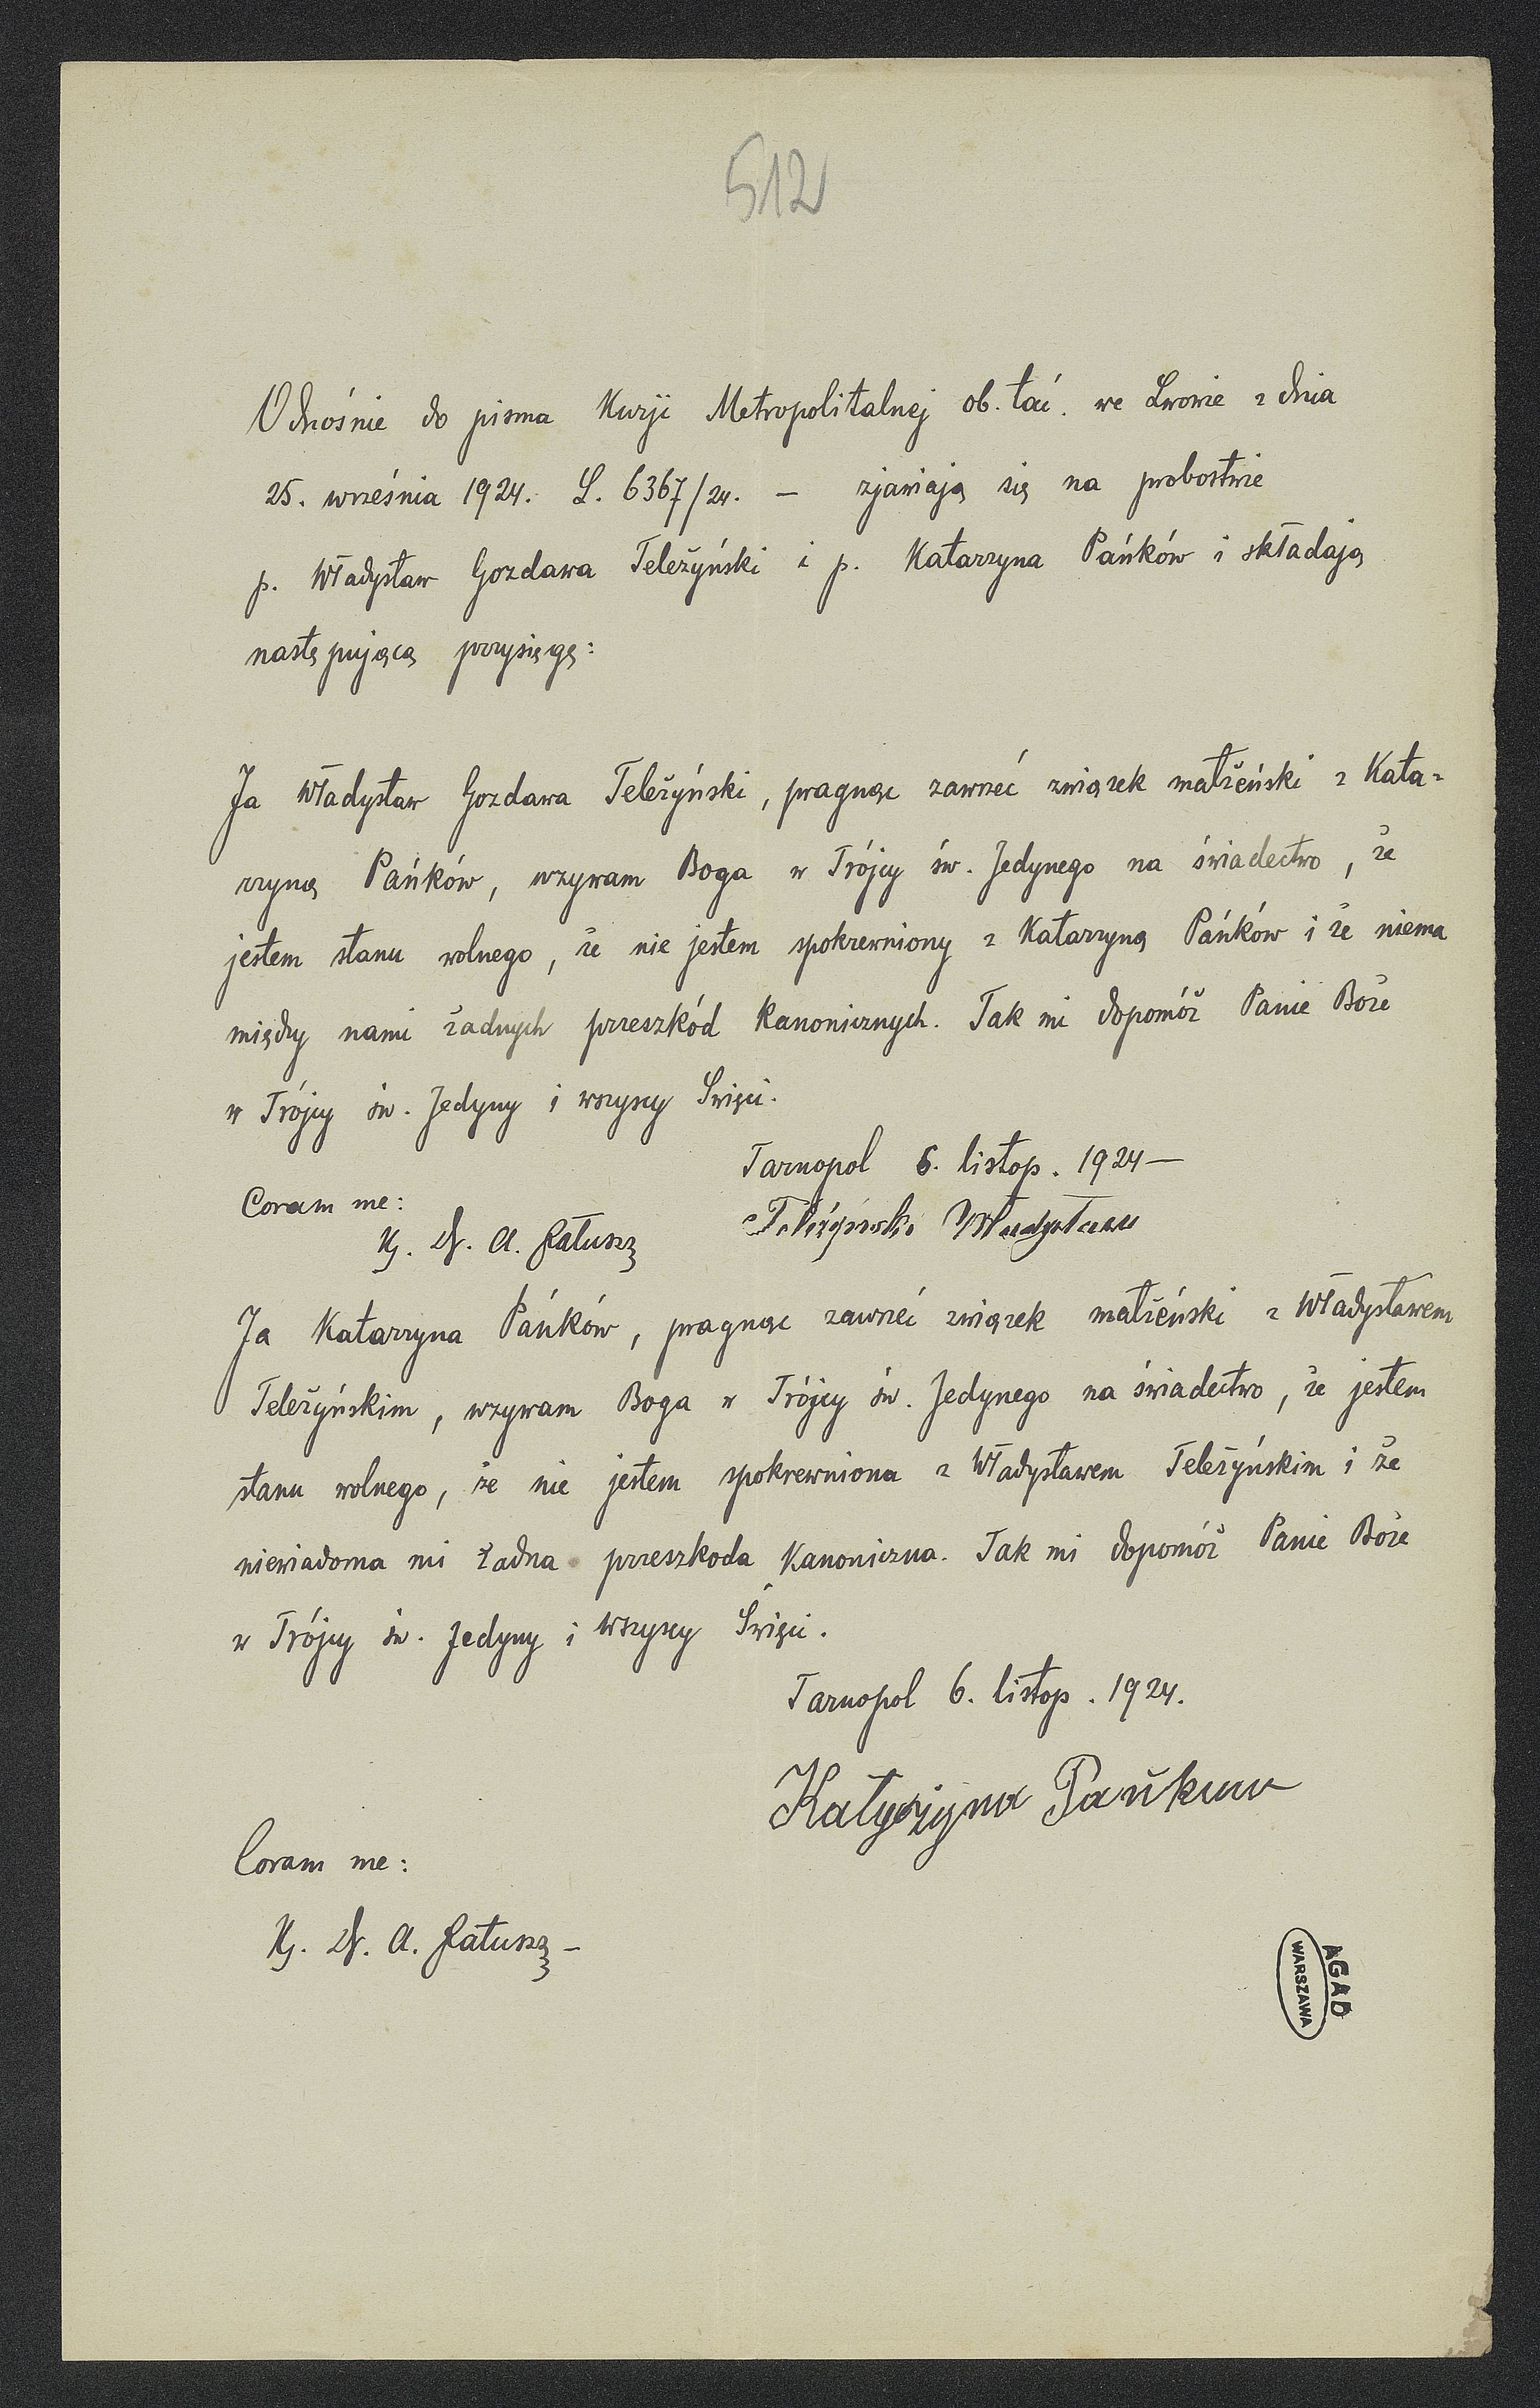 512
Odnośnie do pisma Kurji Metropolitalnej ob. łać. we Lwowie z dnia
25. września 1924. L. 6367/24. — zjawiają się na probostwie
p. Władysław Gozdawa Teleżyński i p. Katarzyna Pańków i składają
następującą przysięgę:
Ja Władysław Gozdawa Teleżyński, pragnąc zawrzeć związek małżeński z Kata-
rzyną Pańków, wzywam Boga w Trójcy św. Jedynego na świadectwo, że
jestem stanu wolnego, że nie jestem spokrewniony z Katarzyną Pańków i że niema
między nami żadnych przeszkód kanonicznych. Tak mi dopomóż Panie Boże
w Trójcy św. Jedyny i wszyscy Święci.
Tarnopol 6. listop. 1924—
Coram me:
Teleżyński Władysław
Ks. Dr. A. Ratusz
Ja Katarzyna Pańków, pragnąc zawrzeć związek małżeński z Władysławem
Teleżyńskim, wzywam Boga w Trójcy św. Jedynego na świadectwo, że jestem
stanu wolnego, że nie jestem spokrewniona z Władysławem Teleżyńskim i że
niewiadoma mi żadna przeszkoda kanoniczna. Tak mi dopomóż Panie Boże
w Trójcy św. Jedyny i Wszyscy Święci.
Tarnopol 6. listop. 1924.
Katyrzyna Pańkuw
Coram me:
Ks. Dr. A. Ratusz —
AGAD
WARSZAWA